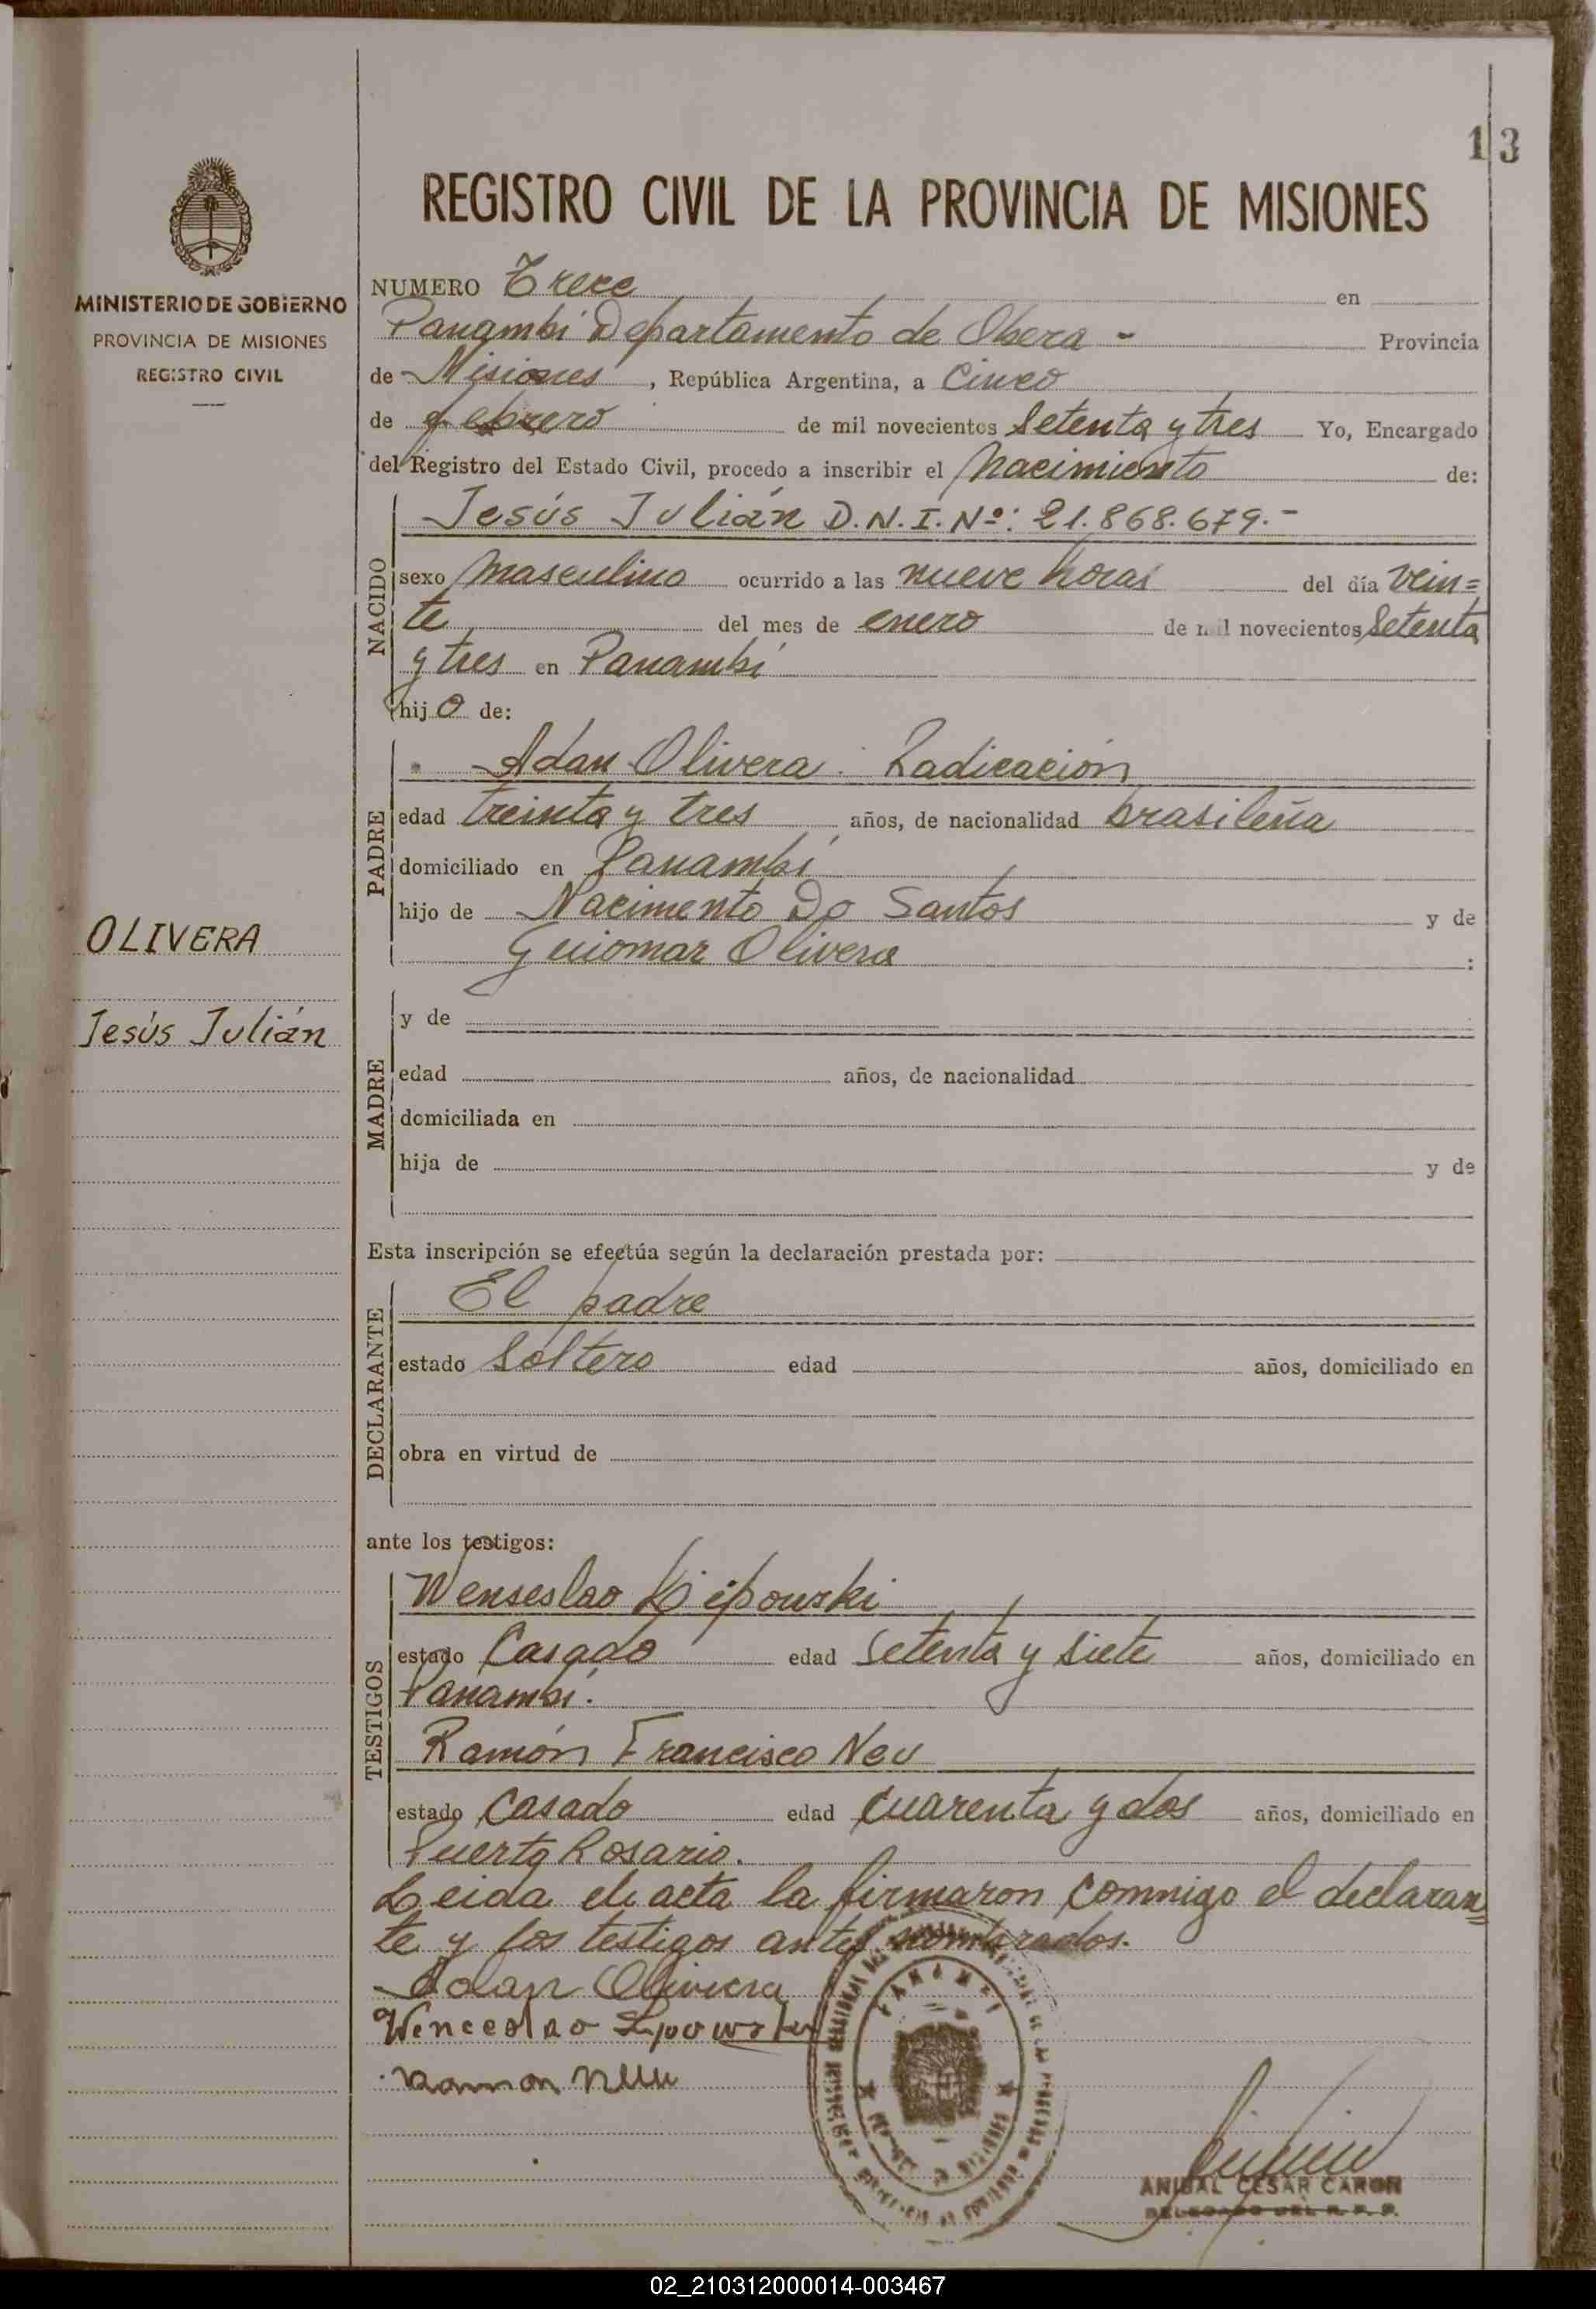 13
REGISTRO CIVIL DE LA PROVINCIA DE MISIONES
MINISTERIO DE GOBIERNO
PROVINCIA DE MISIONES
REGISTRO CIVIL
NUMERO Trece en
Panambi Departamento de Obera - Provincia
de Misiones, República Argentina, a Cinco
de febrero de mil novecientos Setenta y tres Yo, Encargado
del Registro del Estado Civil, procedo a inscribir el Nacimiento de:
NACIDO
Jesús Julián D.N.I. Nº: 21.868.679.-
sexo Masculino ocurrido a las nueve horas del día vein=
te del mes de enero de mil novecientos Setenta
y tres en Panambí
hijo de:
PADRE
Adan Olivera. Radicación
edad treinta y tres años, de nacionalidad brasileña
domiciliado en Panambí
hijo de Nacimento Do Santos y de
Guiomar Olivera :
OLIVERA
Jesús Julián
MADRE
y de
edad años, de nacionalidad
domiciliada en
hija de y de
Esta inscripción se efectúa según la declaración prestada por:
DECLARANTE
El padre
estado Soltero edad años, domiciliado en
obra en virtud de
ante los testigos:
TESTIGOS
Wenseslao
estado Casado edad setenta y siete años, domiciliado en
Panambí.
Ramón Francisco Neu
estado Casado edad cuarenta y dos años, domiciliado en
Puerto Rosario.
Leida el acta la firmaron conmigo el declaran
te y los testigos antes nombrados.
Adan Olivera
Wenceslao
Ramon
PANAMBI
ANIBAL CESAR CARON
DELEGADO DEL R. P. P.
02_210312000014-003467